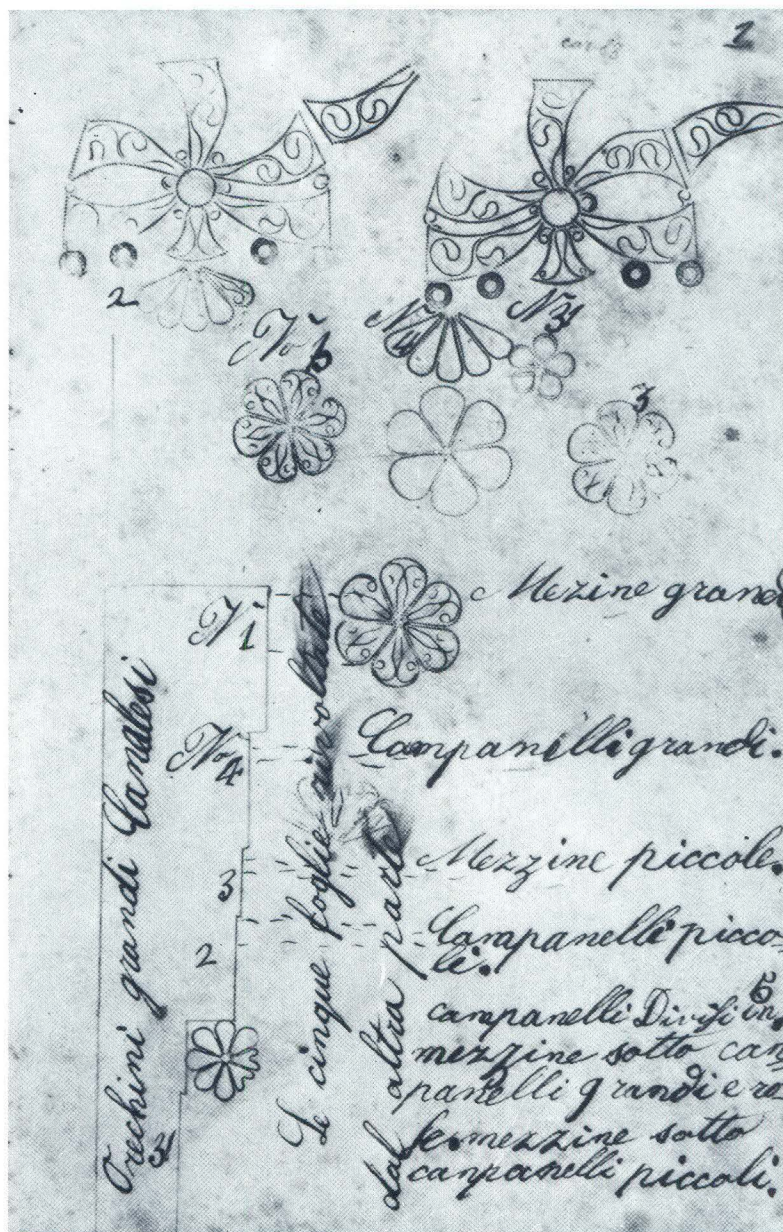 2
2
No 5
No 4
No 31
3
No 1
Mezine grandi
No 4
Campanelli grandi.
3
Mezzine piccole.
2
Campanelli picco=
li.
campanelli Divisi in 5
mezzine sotto can
panelli grandi e
mezzine sotto
canpanelli piccoli.
Orechini grandi Candlesi
31
Le cinque foglie rivoltate
dal altra parte